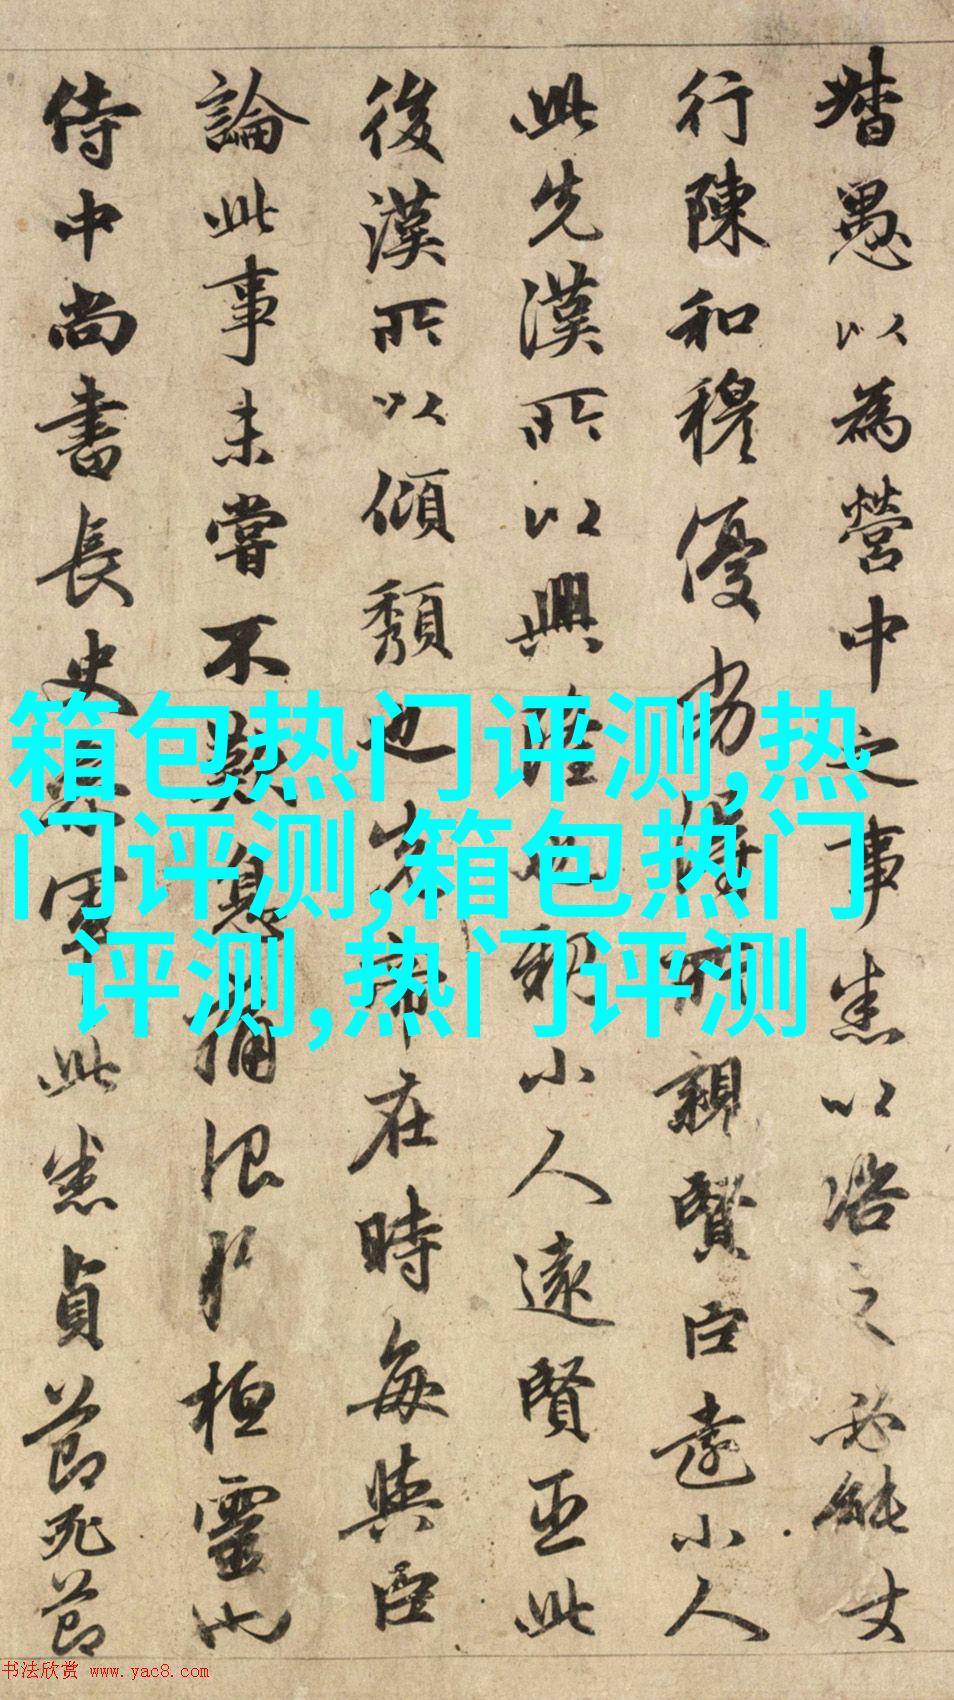 督愚以為營中之事悉以咨之必能使
行陳和穆優劣得所親賢臣遠小人
此先漢所以興隆也親小人遠賢臣此
後漢所以傾頹也先帝在時每與臣
論此事未嘗不歎息痛恨於桓靈也
侍中尚書長史參軍此悉貞亮死節
箱包热门评测,热
门评测,箱包热门
评测,热门评测
书法欣赏 www.yac8.com